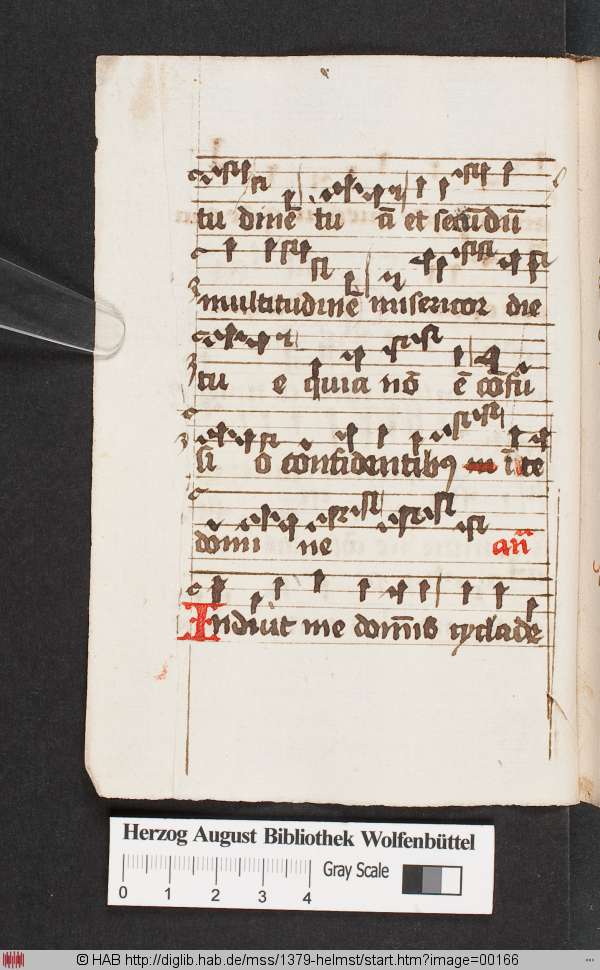 tu dinē tu a᷑ et secūdū
multitudinē misericor die
tu e quia nō ē cōfu
si o confidentibꝰ in ī te
domi ne an̄
Induit me dom̄s cyclade
Herzog August Bibliothek Wolfenbüttel
Gray Scale
0 1 2 3 4
© HAB http://diglib.hab.de/mss/1379-helmst/start.htm?image=00166